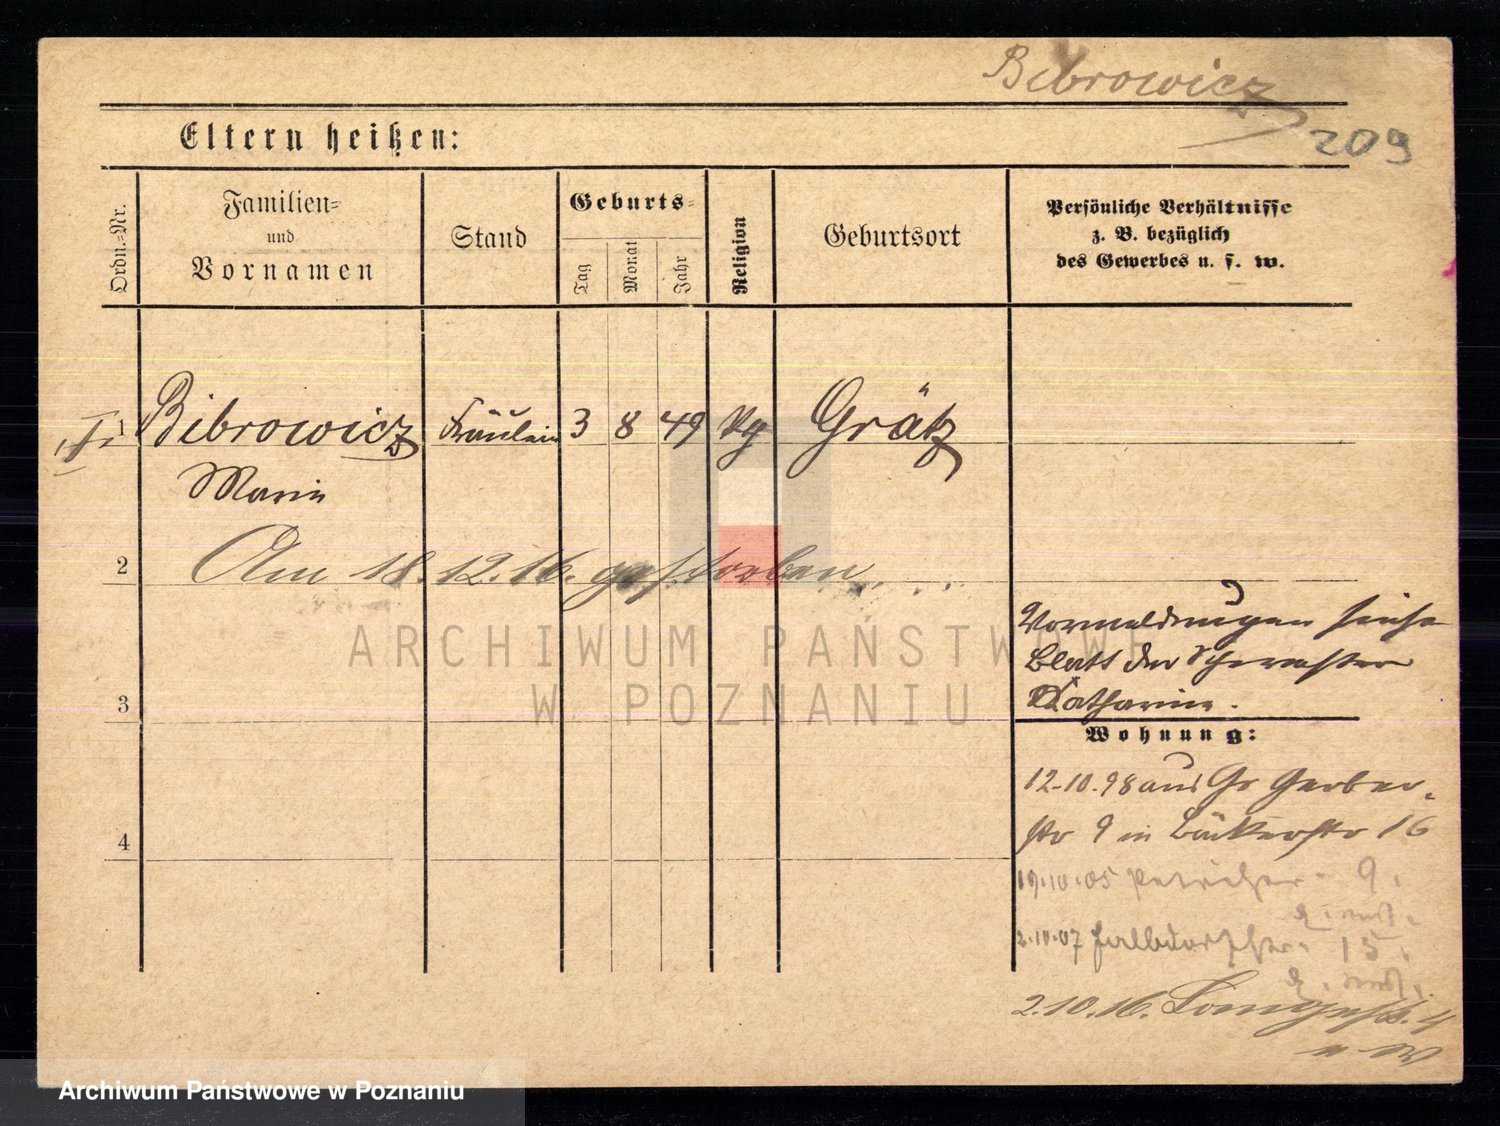 Bibrowicz
209
Eltern heißen:
Ordn.-Nr.
Familien-
und
Vornamen
Stand
Geburts-
Tag
Monat
Jahr
Religion
Geburtsort
Persönliche Verhältnisse
z. B. bezüglich
des Gewerbes u. s. w.
1 Bibrowicz Fräulein 3 8 49 Grätz
Marie
2 Am 18.12.16. gestorben
3
4
Vormeldungen siehe
Blatt der Schwester
Katharina.
Wohnung:
12.10.98 aus Gr Gerber-
str 9 in Bäckerstr 16
19.10.05 9.
2.10.07 15.
2.10.16.
ARCHIWUM PAŃSTWOWE
W POZNANIU
Archiwum Państwowe w Poznaniu